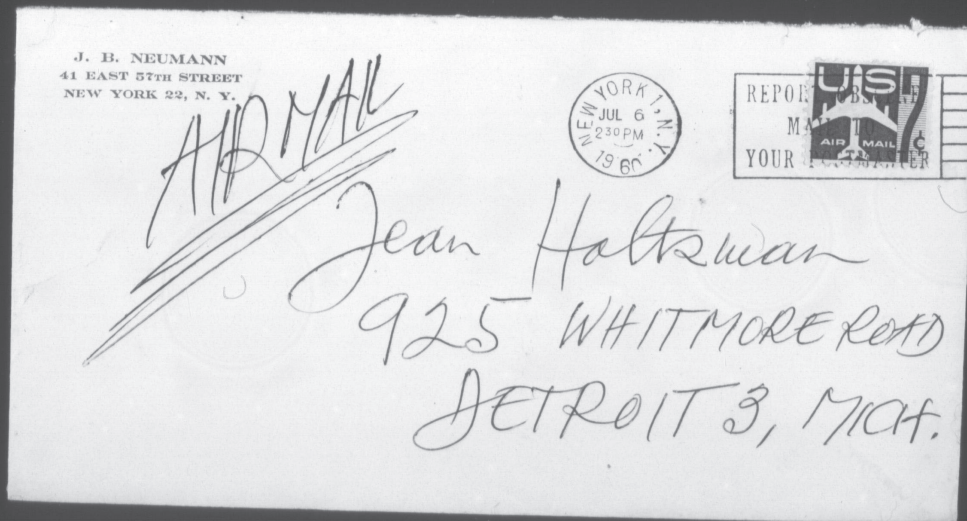 J. B. NEUMANN
41 EAST 57TH STREET
NEW YORK 22, N. Y.
AIR MAIL
NEW YORK 1, N.Y.
JUL 6
230 PM
1960
REPORT OBSCENE
MAIL TO
YOUR POSTMASTER
US
7¢
AIR MAIL
Jean Holtzman
925 WHITMORE ROAD
DETROIT 3, MICH.